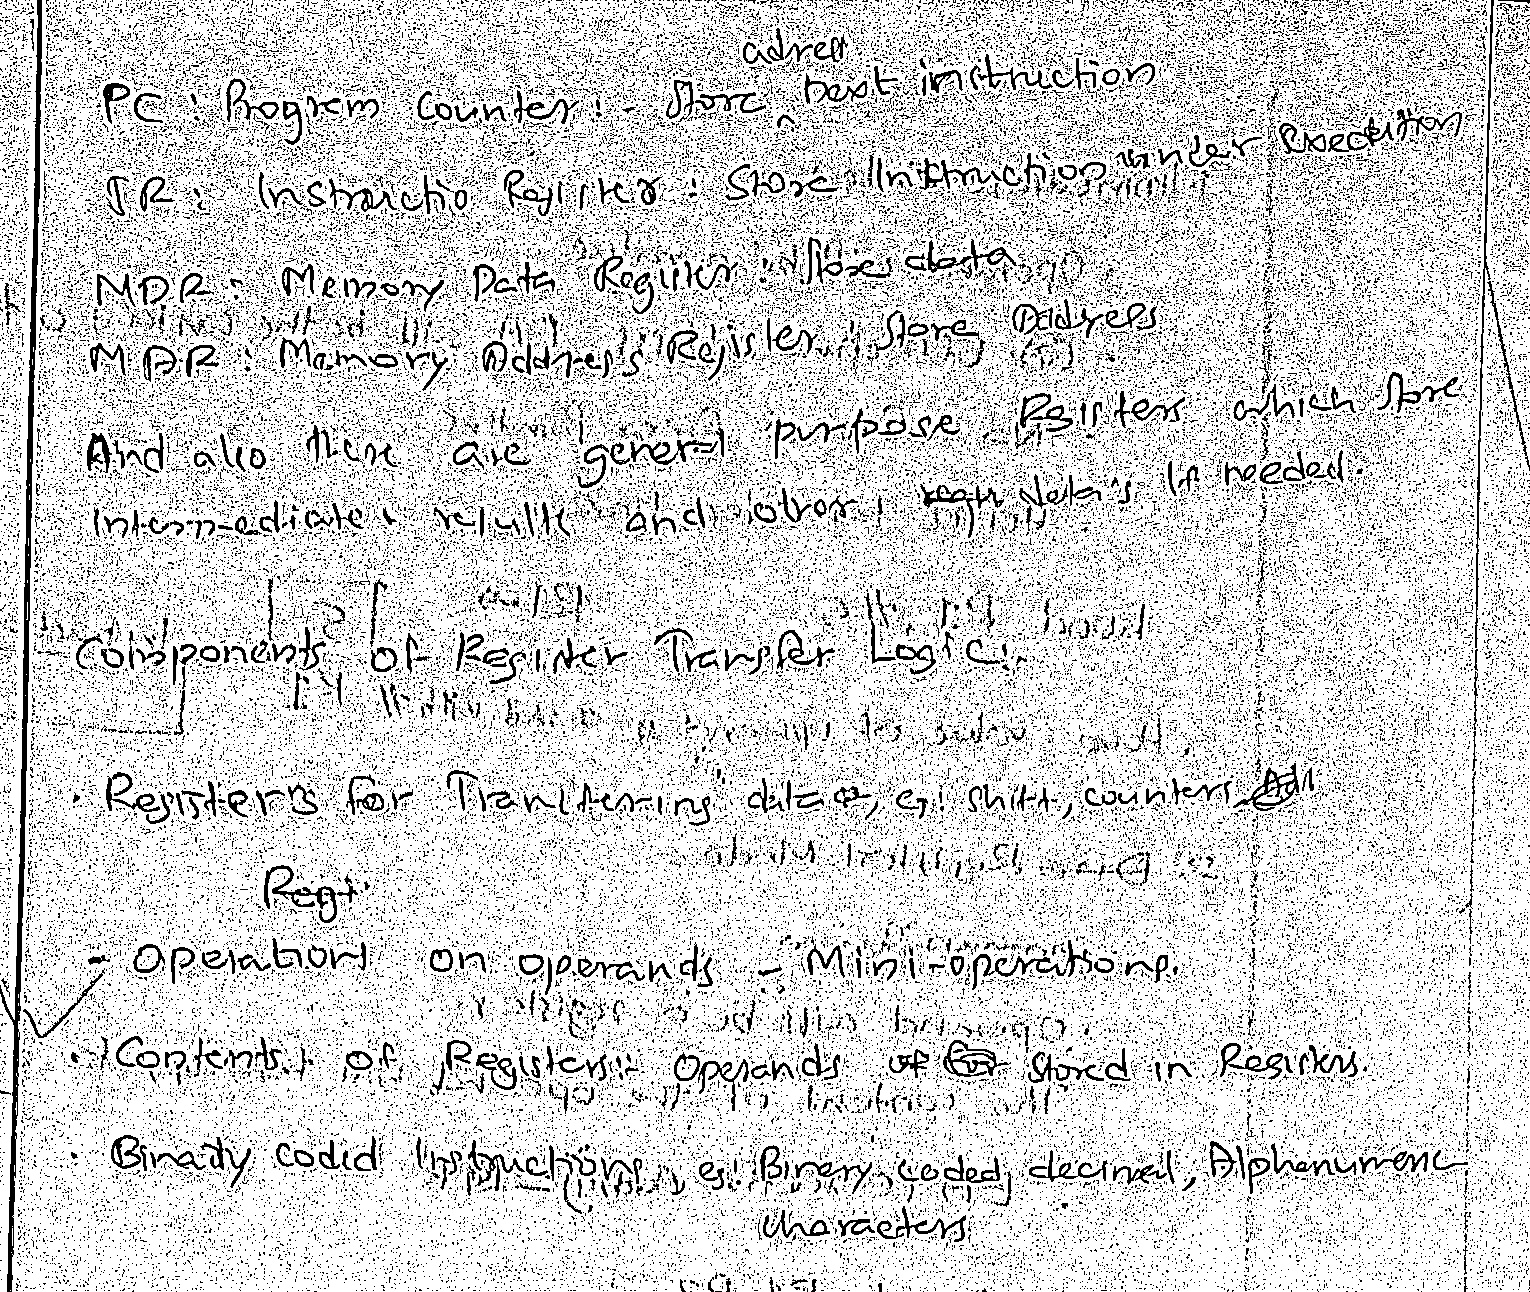 adress
PC : Program Counter : - Store ^ next instruction
IR : Instructio Register : Store Instruction under execution
MDR : Memory Data Register : Stores data
MAR : Memory Address Register : Store Address
And also there are general purpose Registers which store
Intermediate results and other data's if needed.
Components of Register Transfer Logic :-
· Registers for Transferring data, eg: shift, counters
Regt.
- Operations on operands - Mini-operations.
· Contents of Registers :- Operands stored in Registers.
· Binary coded Instructions, eg: Binary coded decimal, Alphanumeric
characters